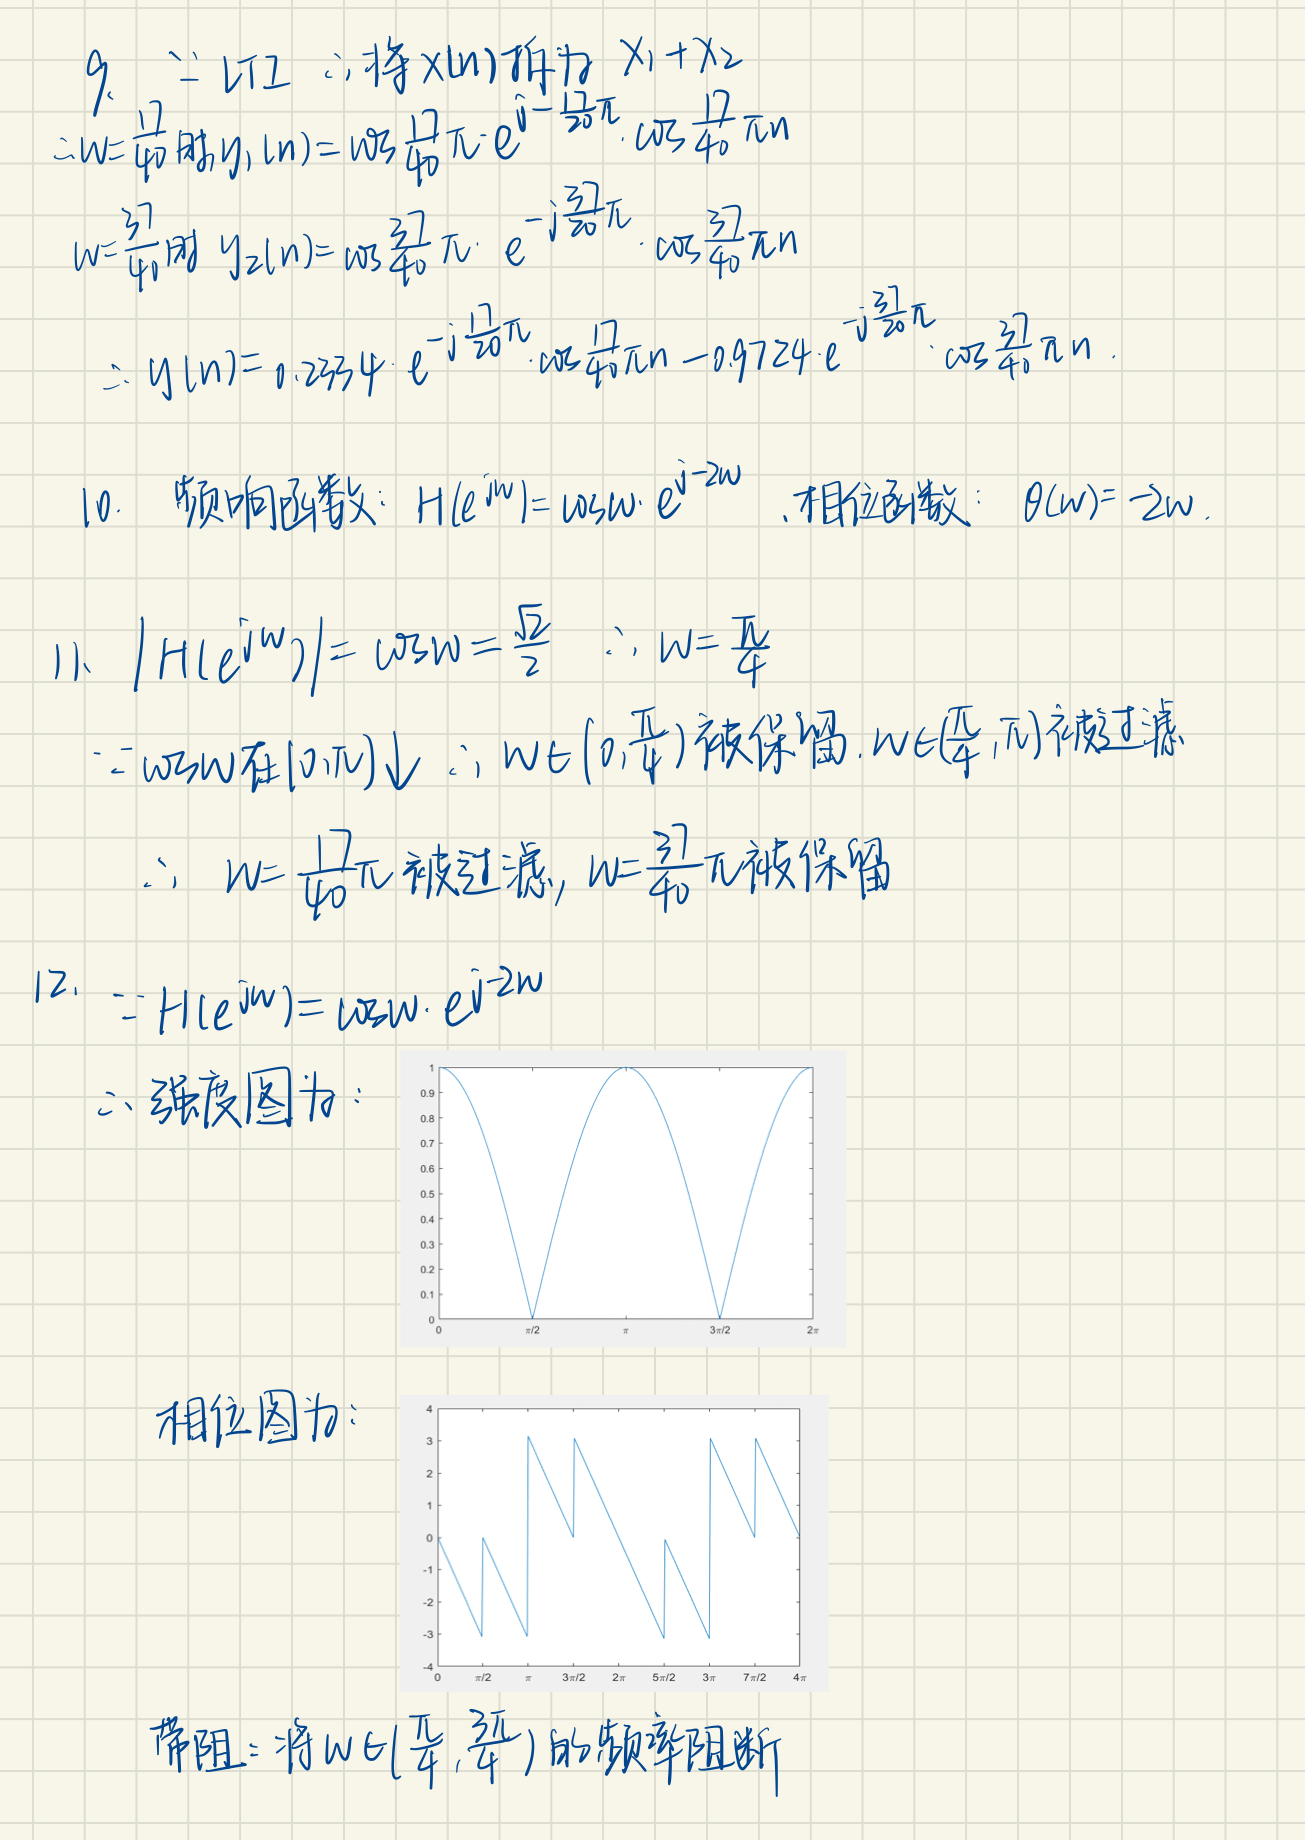 9. ∵ LTI ∴将x(n)拆为 x₁+x₂
∴w=17/40时,y₁(n)=cos17/40π·e^(j-17/20π)·cos17/40πn
w=37/40时 y₂(n)=cos37/40π·e^(-j37/20π)·cos37/40πn
∴y(n)=0.2334·e^(-j17/20π)·cos17/40πn-0.9724·e^(-j37/20π)·cos37/40πn.
10. 频响函数: H(e^(jw))=cosw·e^(j-2w) 、相位函数: θ(w)=-2w.
11、|H(e^(jw))|=cosw=√2/2 ∴w=π/4
∵cosw在[0,π)↓ ∴w∈(0,π/4)被保留.w∈(π/4,π)被过滤
∴ w=17/40π被过滤, w=37/40π被保留
12. ∵H(e^(jw))=cosw·e^(j-2w)
∴强度图为:
1
0.9
0.8
0.7
0.6
0.5
0.4
0.3
0.2
0.1
0
0 π/2 π 3π/2 2π
相位图为:
4
3
2
1
0
-1
-2
-3
-4
0 π/2 π 3π/2 2π 5π/2 3π 7π/2 4π
带阻:将w∈(π/4,3π/4)的频率阻断